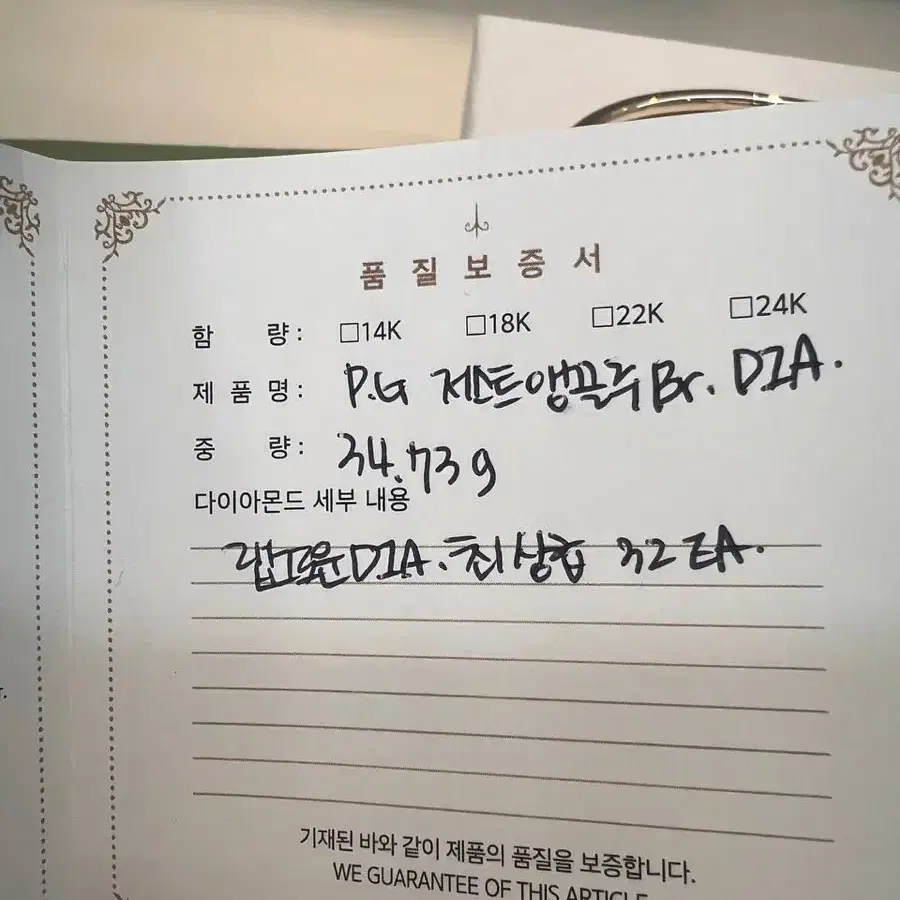 품 질 보 증 서
함 량 : □14K □18K □22K □24K
제 품 명 : P.G 젠트앵끌루Br. DIA.
중 량 : 34.73g
다이아몬드 세부 내용
랩그로운DIA. 최상급 32EA.
기재된 바와 같이 제품의 품질을 보증합니다.
WE GUARANTEE OF THIS ARTICLE